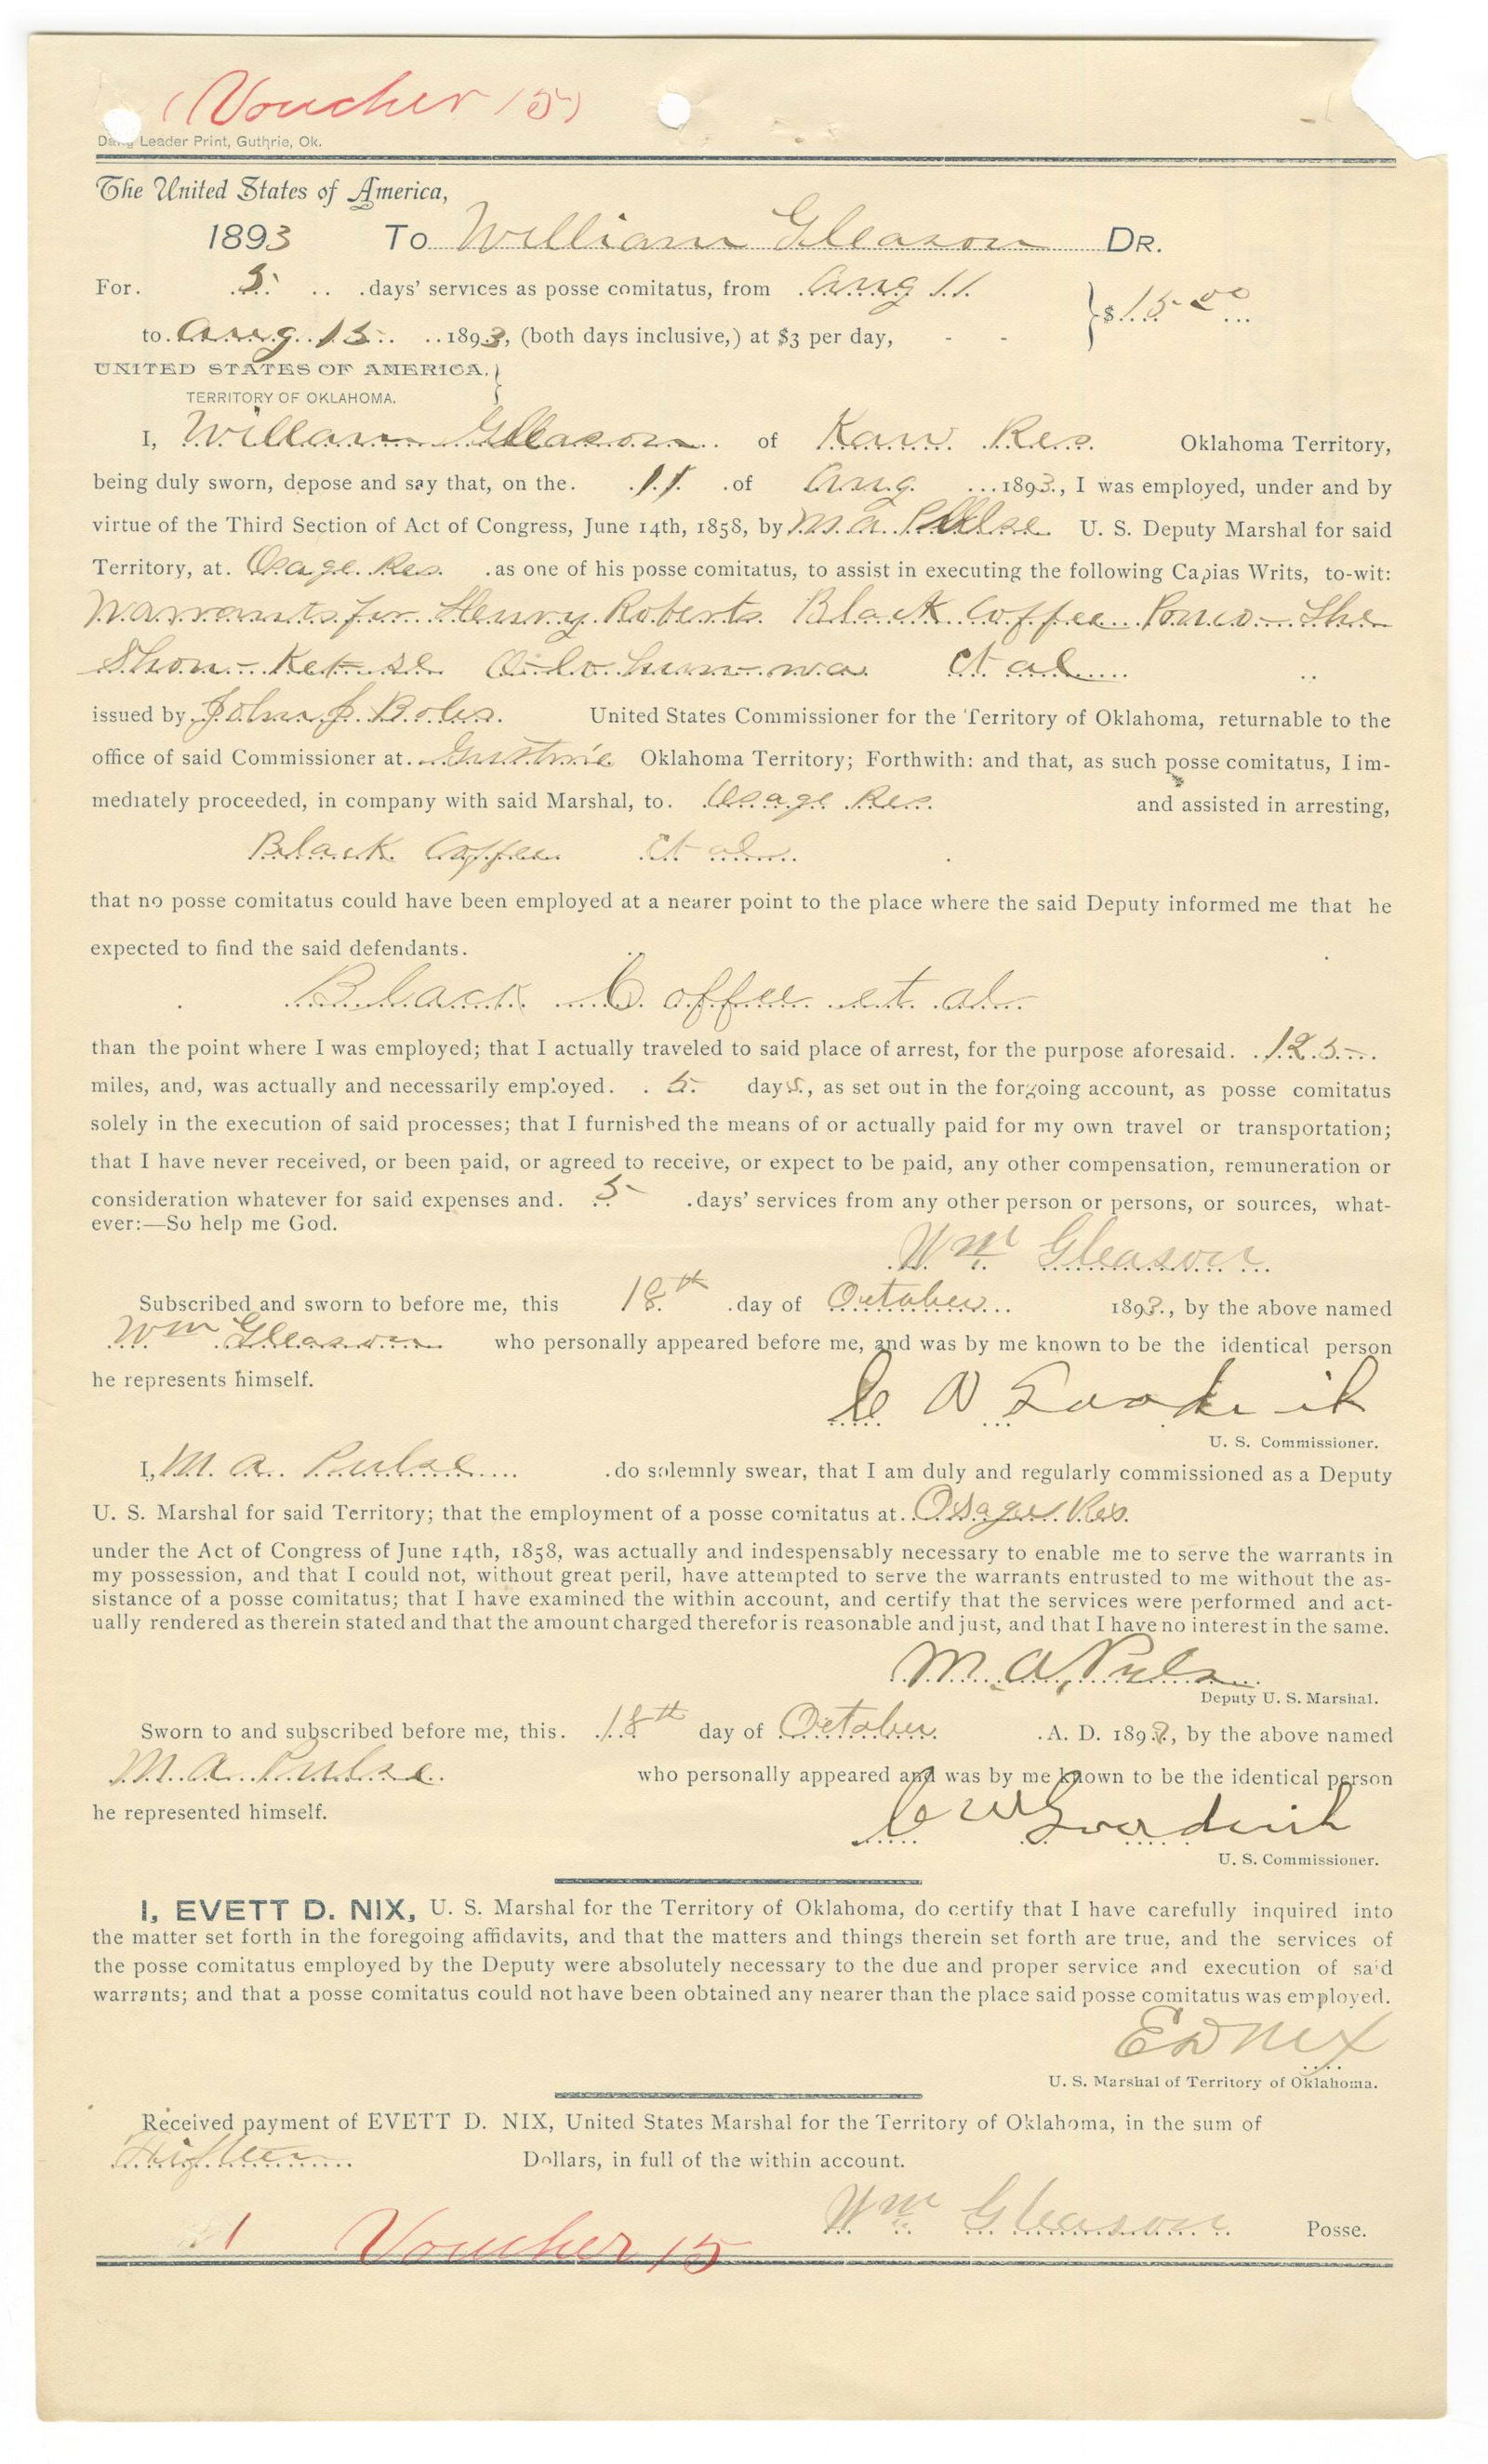 (Voucher 15)
Leader Print, Guthrie, Ok.
The United States of America,
1893 To William Gleason DR.
For 5 days' services as posse comitatus, from Aug 11
to Aug 15 1893, (both days inclusive,) at $3 per day, - - } $15 00
UNITED STATES OF AMERICA, }
TERRITORY OF OKLAHOMA.
I, William Gleason of Kaw Res. Oklahoma Territory,
being duly sworn, depose and say that, on the 11 of Aug. 1893, I was employed, under and by
virtue of the Third Section of Act of Congress, June 14th, 1858, by M. A. Pulse U. S. Deputy Marshal for said
Territory, at Osage Res. as one of his posse comitatus, to assist in executing the following Capias Writs, to-wit:
Warrants for Henry Roberts Black Coffee She
Et al
issued by John J. Boles. United States Commissioner for the Territory of Oklahoma, returnable to the
office of said Commissioner at Guthrie Oklahoma Territory; Forthwith: and that, as such posse comitatus, I im-
mediately proceeded, in company with said Marshal, to Osage Res. and assisted in arresting,
Black Coffee Et al
that no posse comitatus could have been employed at a nearer point to the place where the said Deputy informed me that he
expected to find the said defendants.
Black Coffee et al.
than the point where I was employed; that I actually traveled to said place of arrest, for the purpose aforesaid 125
miles, and, was actually and necessarily employed 5 days, as set out in the forgoing account, as posse comitatus
solely in the execution of said processes; that I furnished the means of or actually paid for my own travel or transportation;
that I have never received, or been paid, or agreed to receive, or expect to be paid, any other compensation, remuneration or
consideration whatever for said expenses and 5 days' services from any other person or persons, or sources, what-
ever:—So help me God.
Wm Gleason
Subscribed and sworn to before me, this 18th day of October 1893, by the above named
Wm Gleason who personally appeared before me, and was by me known to be the identical person
he represents himself.
U. S. Commissioner.
I, M. A. Pulse do solemnly swear, that I am duly and regularly commissioned as a Deputy
U. S. Marshal for said Territory; that the employment of a posse comitatus at Osage Res.
under the Act of Congress of June 14th, 1858, was actually and indespensably necessary to enable me to serve the warrants in
my possession, and that I could not, without great peril, have attempted to serve the warrants entrusted to me without the as-
sistance of a posse comitatus; that I have examined the within account, and certify that the services were performed and act-
ually rendered as therein stated and that the amount charged therefor is reasonable and just, and that I have no interest in the same.
M. A. Pulse
Deputy U. S. Marshal.
Sworn to and subscribed before me, this 18th day of October A. D. 1893, by the above named
M. A. Pulse who personally appeared and was by me known to be the identical person
he represented himself.
U. S. Commissioner.
I, EVETT D. NIX, U. S. Marshal for the Territory of Oklahoma, do certify that I have carefully inquired into
the matter set forth in the foregoing affidavits, and that the matters and things therein set forth are true, and the services of
the posse comitatus employed by the Deputy were absolutely necessary to the due and proper service and execution of said
warrants; and that a posse comitatus could not have been obtained any nearer than the place said posse comitatus was employed.
E D Nix
U. S. Marshal of Territory of Oklahoma.
Received payment of EVETT D. NIX, United States Marshal for the Territory of Oklahoma, in the sum of
Fifteen Dollars, in full of the within account.
Wm Gleason Posse.
1 Voucher 15